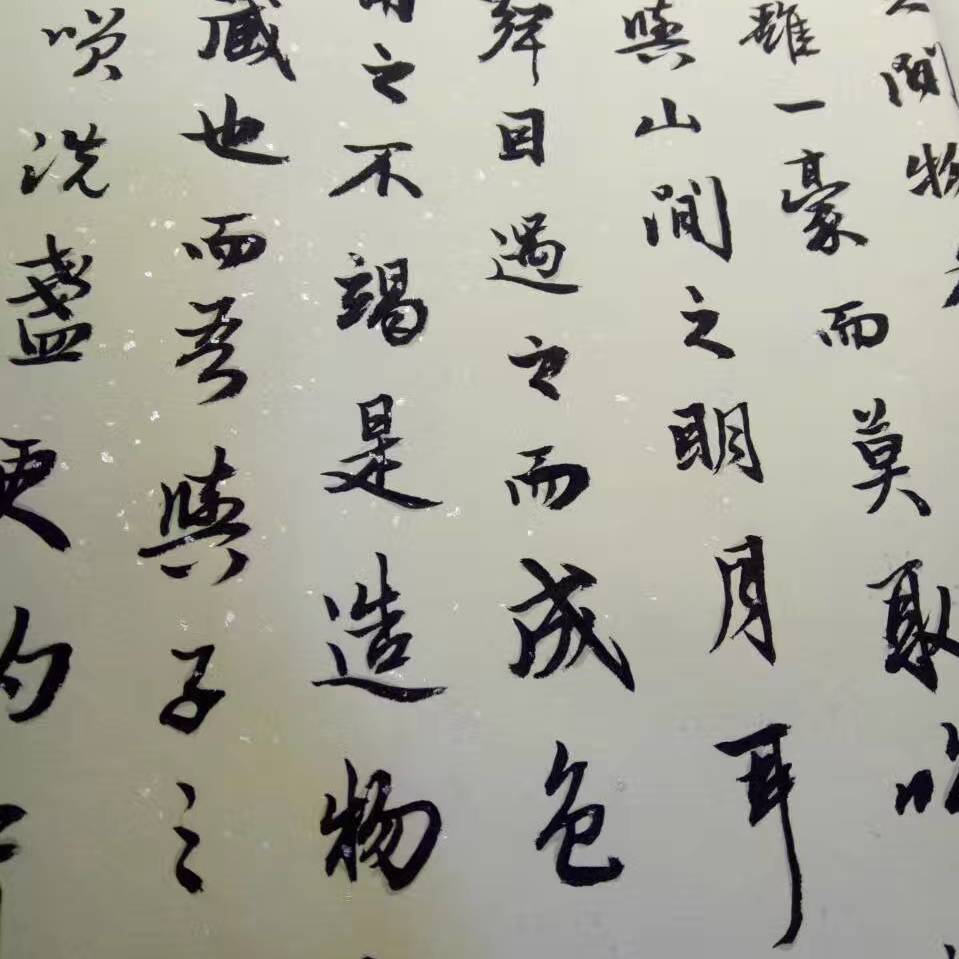 間物
雖一豪而莫取
與山間之明月耳
聲目遇之而成色
用之不竭是造物
藏也而吾與子之
咲洗盞更酌